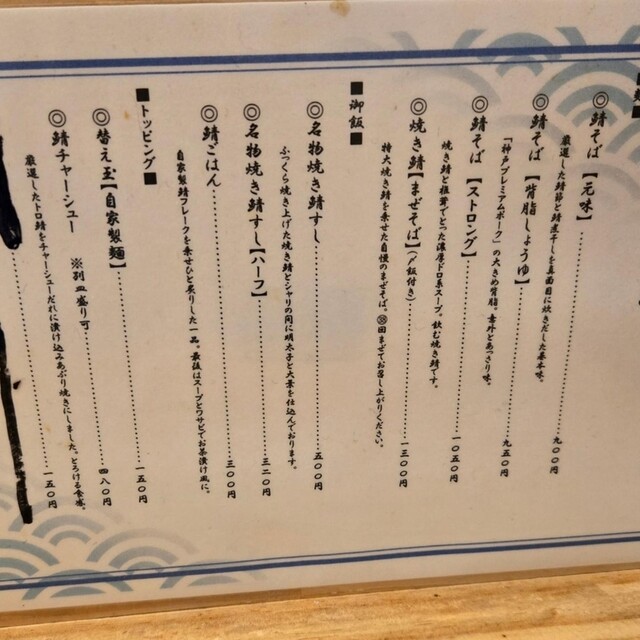 ■麺■
◎鯖そば【元味】……九〇〇円
厳選した鯖節と鯖煮干しを真面目に炊きだした基本味。
◎鯖そば【背脂しょうゆ】……九五〇円
「神戸プレミアムポーク」の大きめ背脂。意外とあっさり味。
◎鯖そば【ストロング】……一〇五〇円
焼き鯖と椎茸でとった濃厚ドロ系スープ。飲む焼き鯖です。
◎焼き鯖【まぜそば】（〆飯付き）……一三〇〇円
特大焼き鯖を乗せた自慢のまぜそば。㉚回まぜてお召し上がりください。
■御飯■
◎名物焼き鯖すし……五〇〇円
ふっくら焼き上げた焼き鯖とシャリの間に明太子と大葉を仕込んでおります。
◎名物焼き鯖すし【ハーフ】……三二〇円
◎鯖ごはん……三〇〇円
自家製鯖フレークを乗せひと炙りした一品。最後はスープとワサビでお茶漬け風に。
■トッピング■
◎替え玉【自家製麺】……一五〇円
◎鯖チャーシュー ※別皿盛り可……四八〇円
厳選したトロ鯖をチャーシューだれに漬け込みあぶり焼きにしました。とろける食感。
……一五〇円